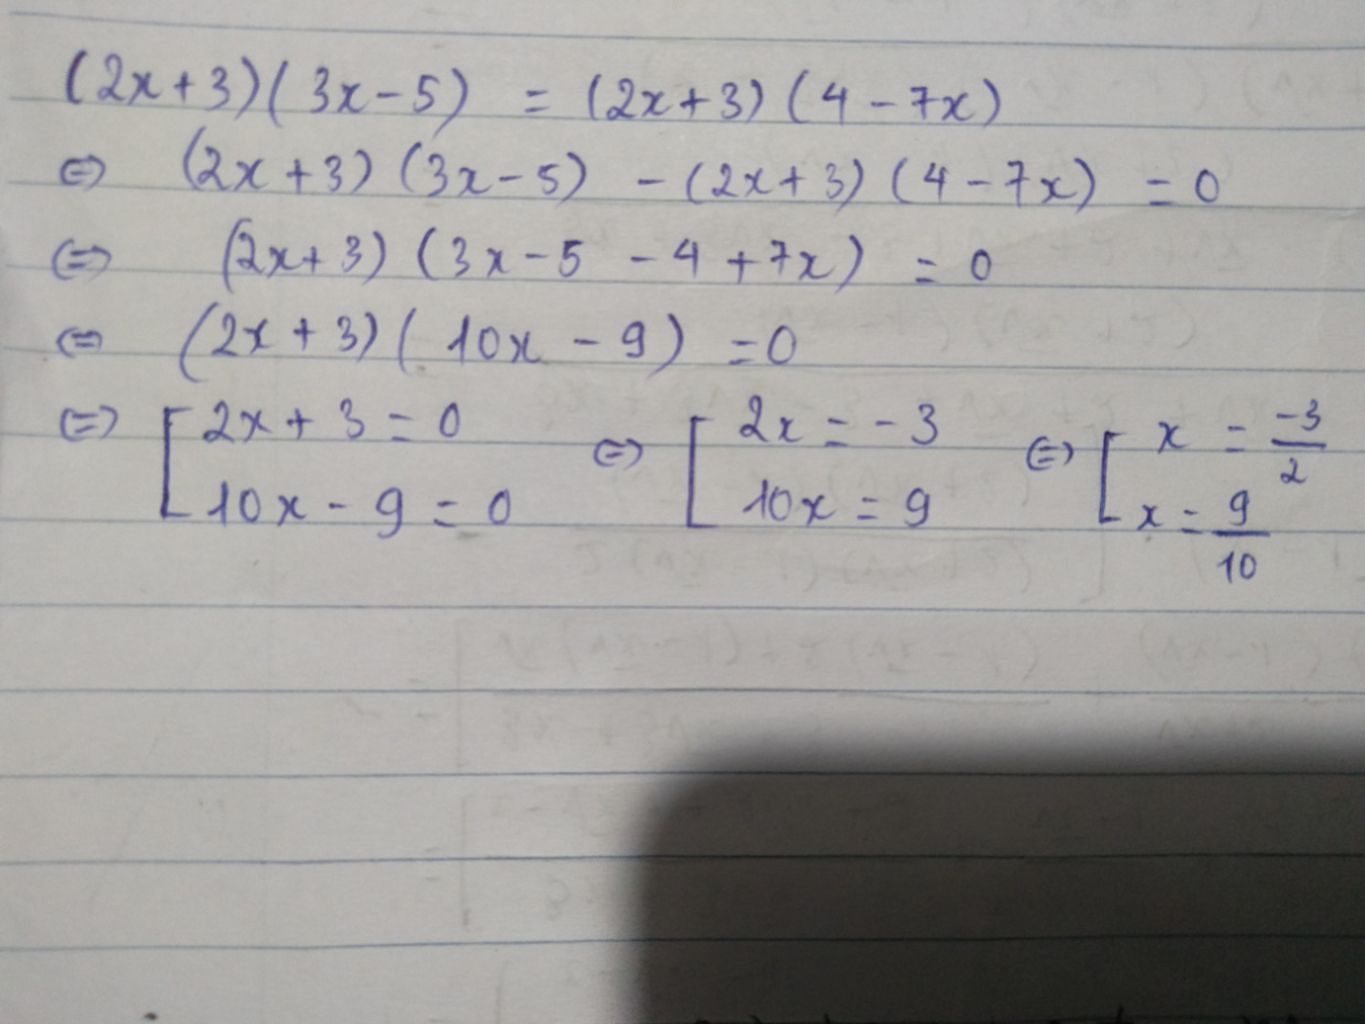 (2x+3)(3x-5) = (2x+3)(4-7x)
⇔ (2x+3)(3x-5) - (2x+3)(4-7x) = 0
⇔ (2x+3)(3x-5-4+7x) = 0
⇔ (2x+3)(10x-9) = 0
⇔ [ 2x+3=0 ⇔ [ 2x=-3 ⇔ [ x = -3/2
10x-9=0 10x=9 x = 9/10